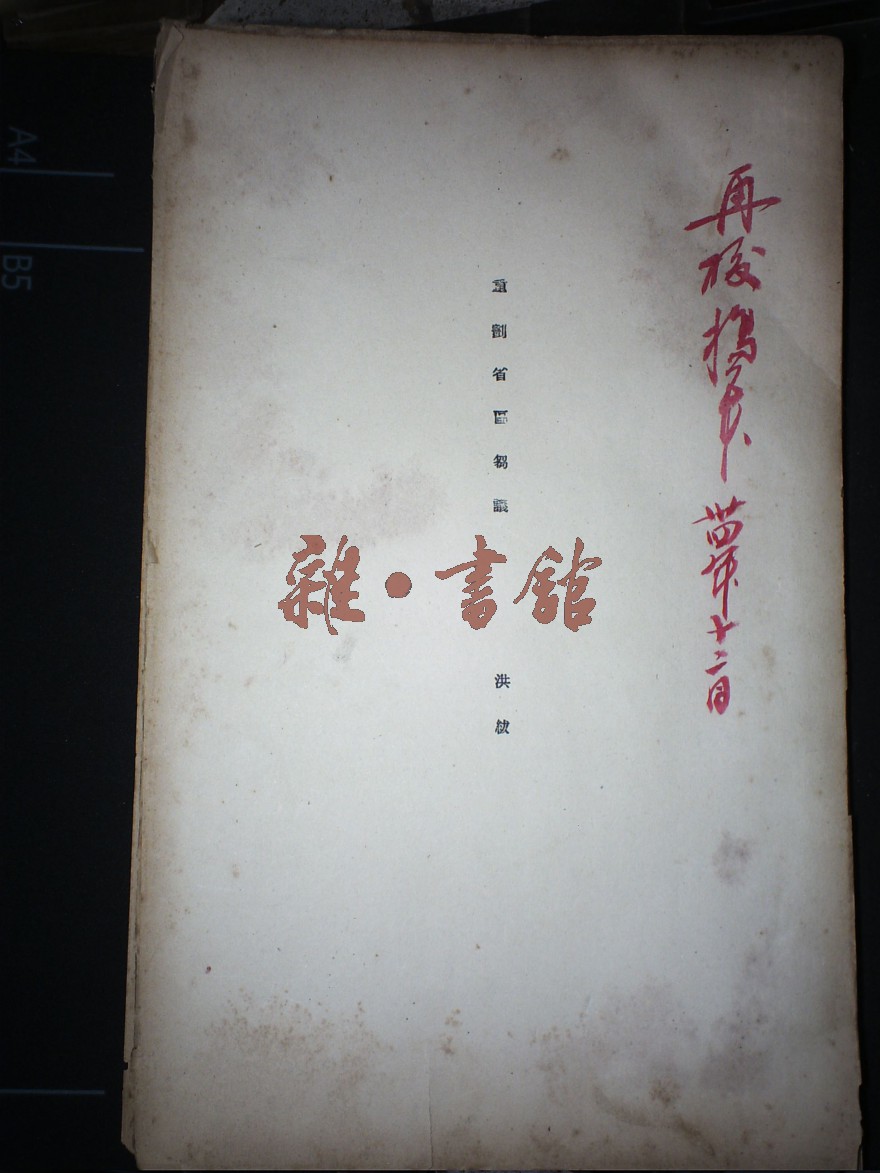 再校
卅四年十二月
重劃省區芻議
洪紱
雜·書館
A4
B5